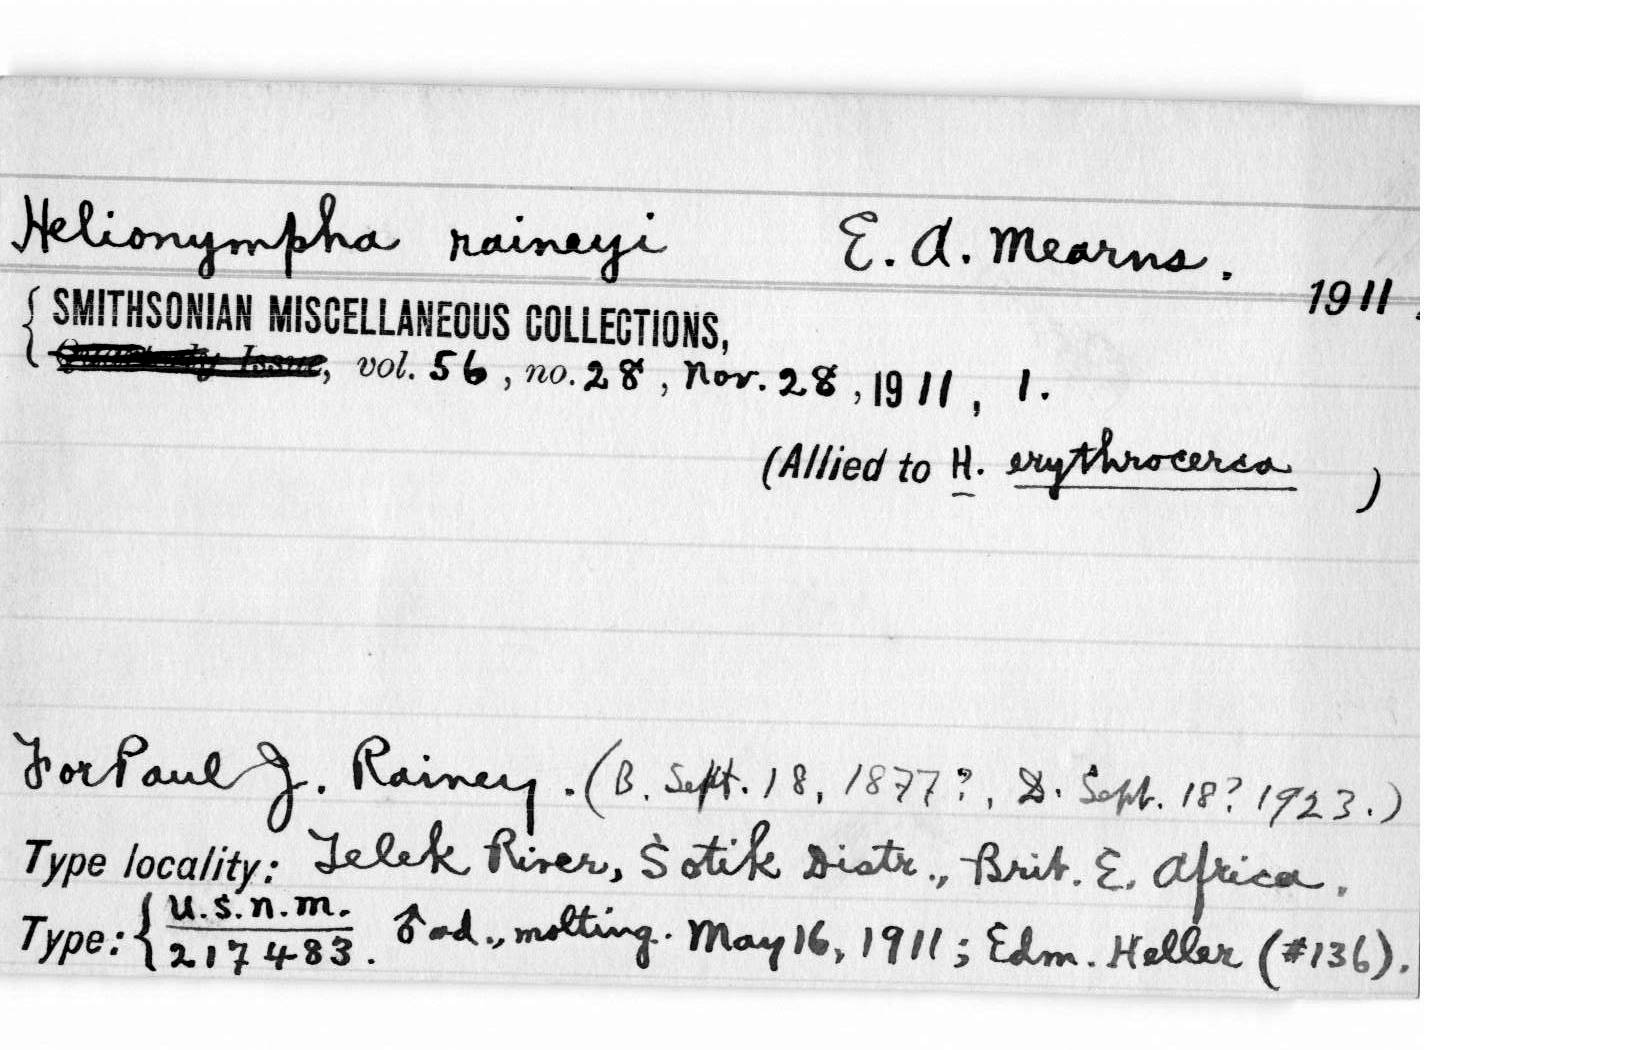 Helionympha raineyi E. A. Mearns. 1911.
{ SMITHSONIAN MISCELLANEOUS COLLECTIONS,
Quarterly Issue, vol. 56, no. 28, Nov. 28, 1911, 1.
(Allied to H. erythrocerca )
For Paul J. Rainey. (B. Sept. 18, 1877?, D. Sept. 18? 1923.)
Type locality: Telek River, Sotik Distr., Brit. E. Africa.
Type: { U.S.N.M. 217483. ♂ ad., molting. May 16, 1911; Edm. Heller (#136).